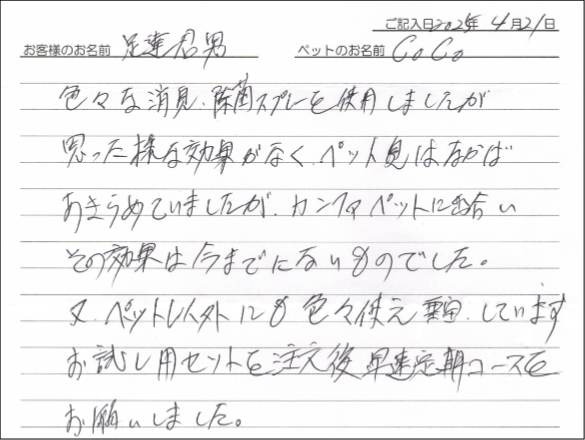 ご記入日2025年 4月21日
お客様のお名前 足達君男 ペットのお名前 CoCo
色々な消臭、除菌スプレーを使用しましたが
思った様な効果がなく、ペット臭はなかば
あきらめていましたが、カンファペットに出会い
その効果は今までにないものでした。
又、ペット以外にも色々使え重宝しています
お試し用セットを注文後早速定期コースを
お願いしました。